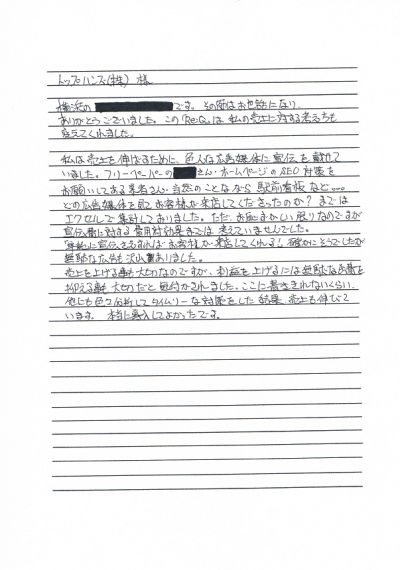 トップハンズ(株) 様
横浜の です。その節はお世話になり
ありがとうございました。この「Re:Q」は私の売上に対する考え方も
変えてくれました。
私は売上を伸ばすために、色んな広告媒体に宣伝を載せて
いました。フリーペーパーの さん・ホームページのSEO対策を
お願いしてある業者さん・当然のことながら駅前看板など....
どの広告媒体を見てお客様が来店してくださったのか?までは
エクセルで集計しておりました。ただ、お恥ずかしい限りなのですが
宣伝費に対する費用対効果までは考えていませんでした。
に宣伝さえすればお客様が来店してくれる!確かにそうでしたが
無駄な広告も沢山ありました。
売上を上げる事も大切なのですが、利益を上げるには無駄な出費を
抑える事も大切だと気付かされました。ここに書ききれないくらい、
他にも色々分析してタイムリーな対策をした結果、売上も伸びて
います。本当に導入してよかったです。